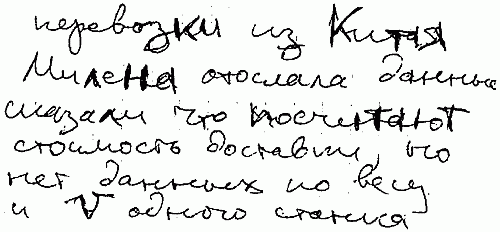 перевозки из Китая
Милена отослала данные
сказали что посчитают
стоимость доставки, но
нет данных по весу
и V одного станка